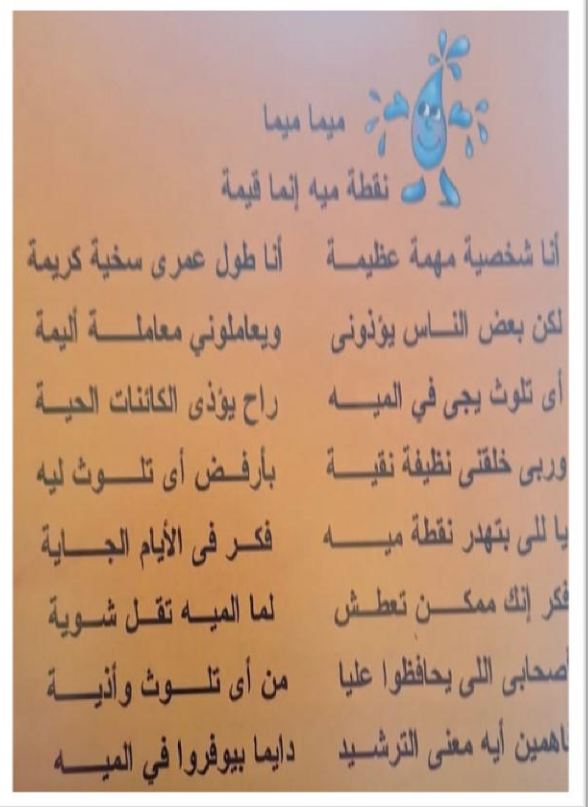 ميما ميما
نقطة ميه إنما قيمة
أنا شخصية مهمة عظيمـــة أنا طول عمرى سخية كريمة
لكن بعض النــاس يؤذونى ويعاملوني معاملــــة أليمة
أى تلوث يجى في الميـــه راح يؤذى الكائنات الحيــة
وربى خلقنى نظيفة نقيـــة بأرفــض أى تلـــوث ليه
يا للى بتهدر نقطة ميـــــه فكــر فى الأيام الجـــاية
فكر إنك ممكـــن تعطــش لما الميــه تقــل شــوية
أصحابى اللى يحافظوا عليا من أى تلـــوث وأذيـــة
فاهمين أيه معنى الترشــيد دايما بيوفروا في الميـــه